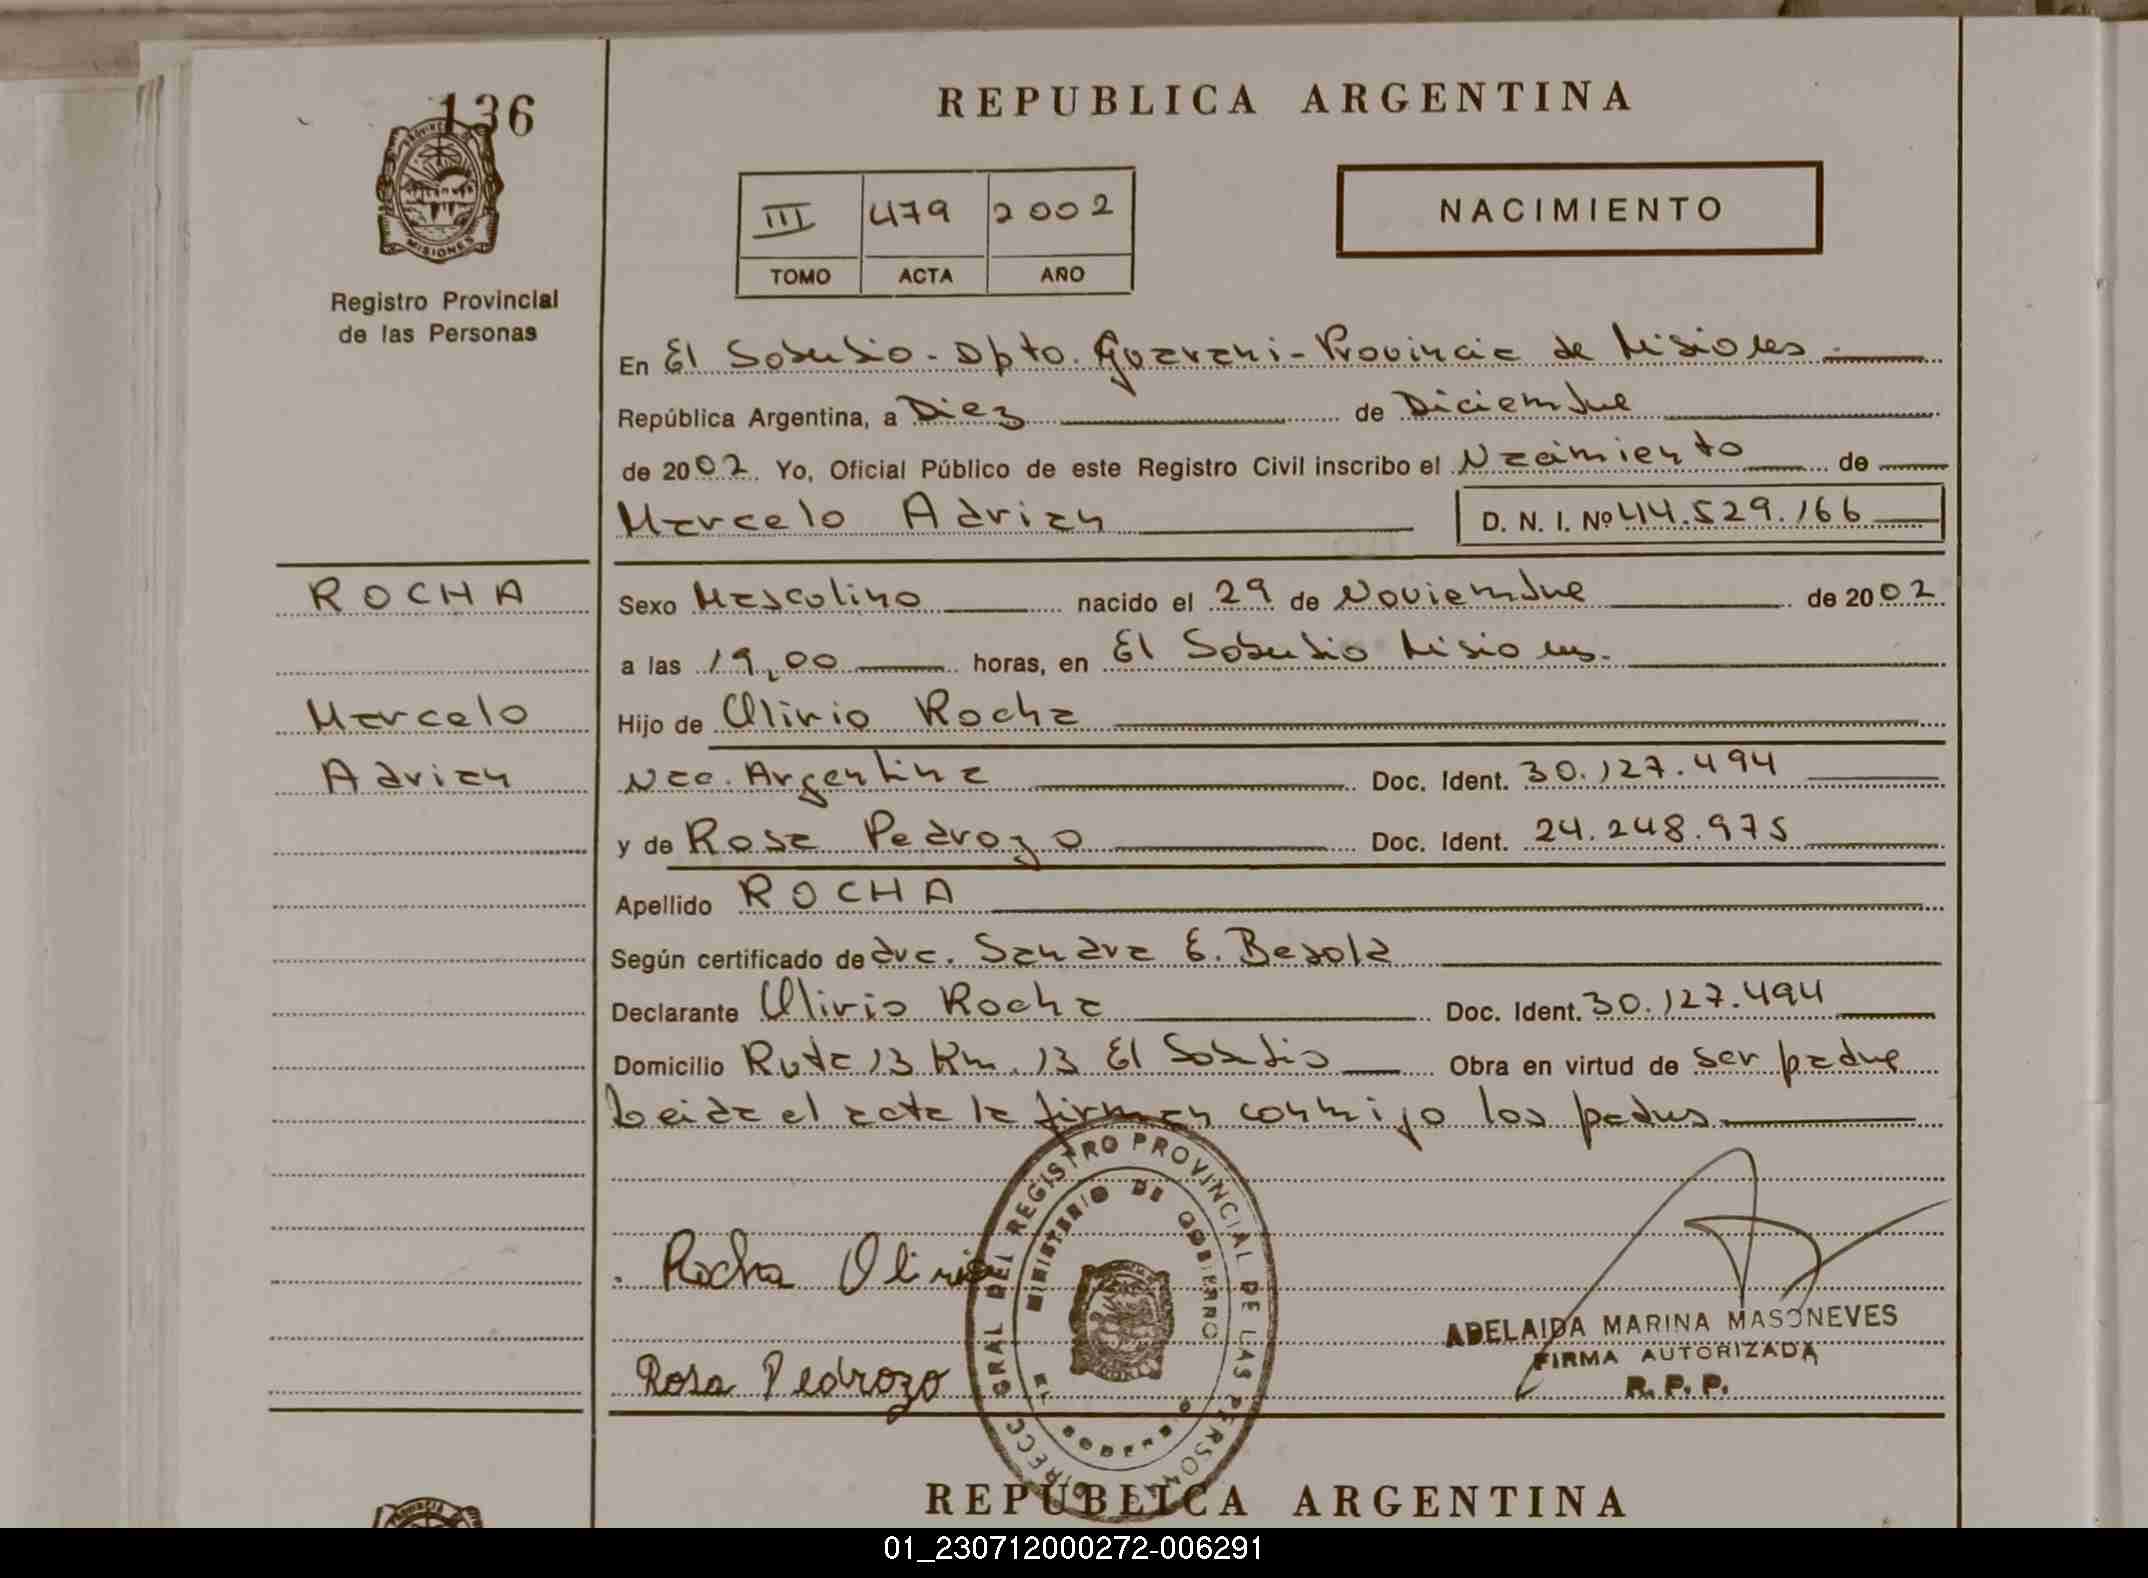 136
PROVINCIA DE
MISIONES
Registro Provincial
de las Personas
REPUBLICA ARGENTINA
III 479 2002
TOMO ACTA AÑO
NACIMIENTO
En El Soberbio - Dpto. Guarani - Provincia de Misiones
República Argentina, a Diez de Diciembre
de 2002 Yo, Oficial Público de este Registro Civil inscribo el Nacimiento de
Marcelo Adrian D. N. I. Nº 44.529.166
ROCHA
Marcelo
Adrian
Sexo Masculino nacido el 29 de Noviembre de 2002
a las 19,00 horas, en El Soberbio Misiones.
Hijo de Olirio Rocha
Nac. Argentina Doc. Ident. 30.127.494
y de Rosa Pedrozo Doc. Ident. 24.248.975
Apellido ROCHA
Según certificado de dra. Sandra E.
Declarante Olirio Rocha Doc. Ident. 30.127.494
Domicilio Ruta 13 Km. 13 El Soberbio Obra en virtud de ser padre
Leida el acta la firman conmigo los padres
Rocha Olirio
Rosa Pedrozo
DIRECC GRAL DEL REGISTRO PROVINCIAL DE LAS PERSONAS
MINISTERIO DE GOBIERNO
EL SOBERBIO
ADELAIDA MARINA MASONEVES
FIRMA AUTORIZADA
R. P. P.
REPUBLICA ARGENTINA
01_230712000272-006291